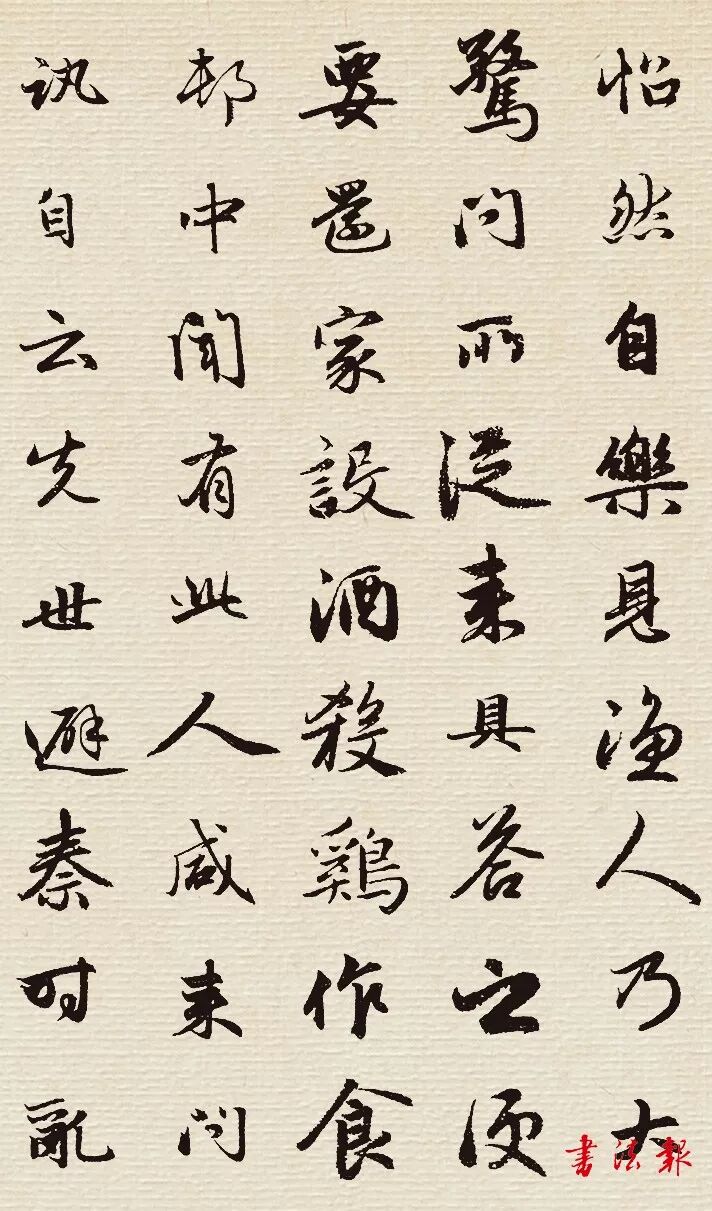 怡然自樂見漁人乃大
驚問所從來具答之便
要還家設酒殺雞作食
邨中聞有此人咸來問
訊自云先世避秦時亂
書法報